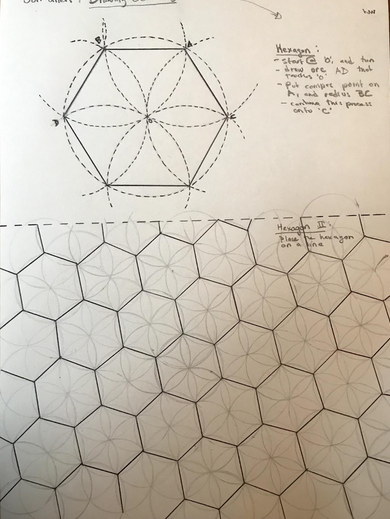 Drawing
Hexagon :
- start @ 'O', and then
- draw arc AD that
radius 'O'
- Put compass point on
A, and radius BC
- continue this process
onto 'C'
B
A
D
O
Hexagon II :
Place the hexagon
on a line